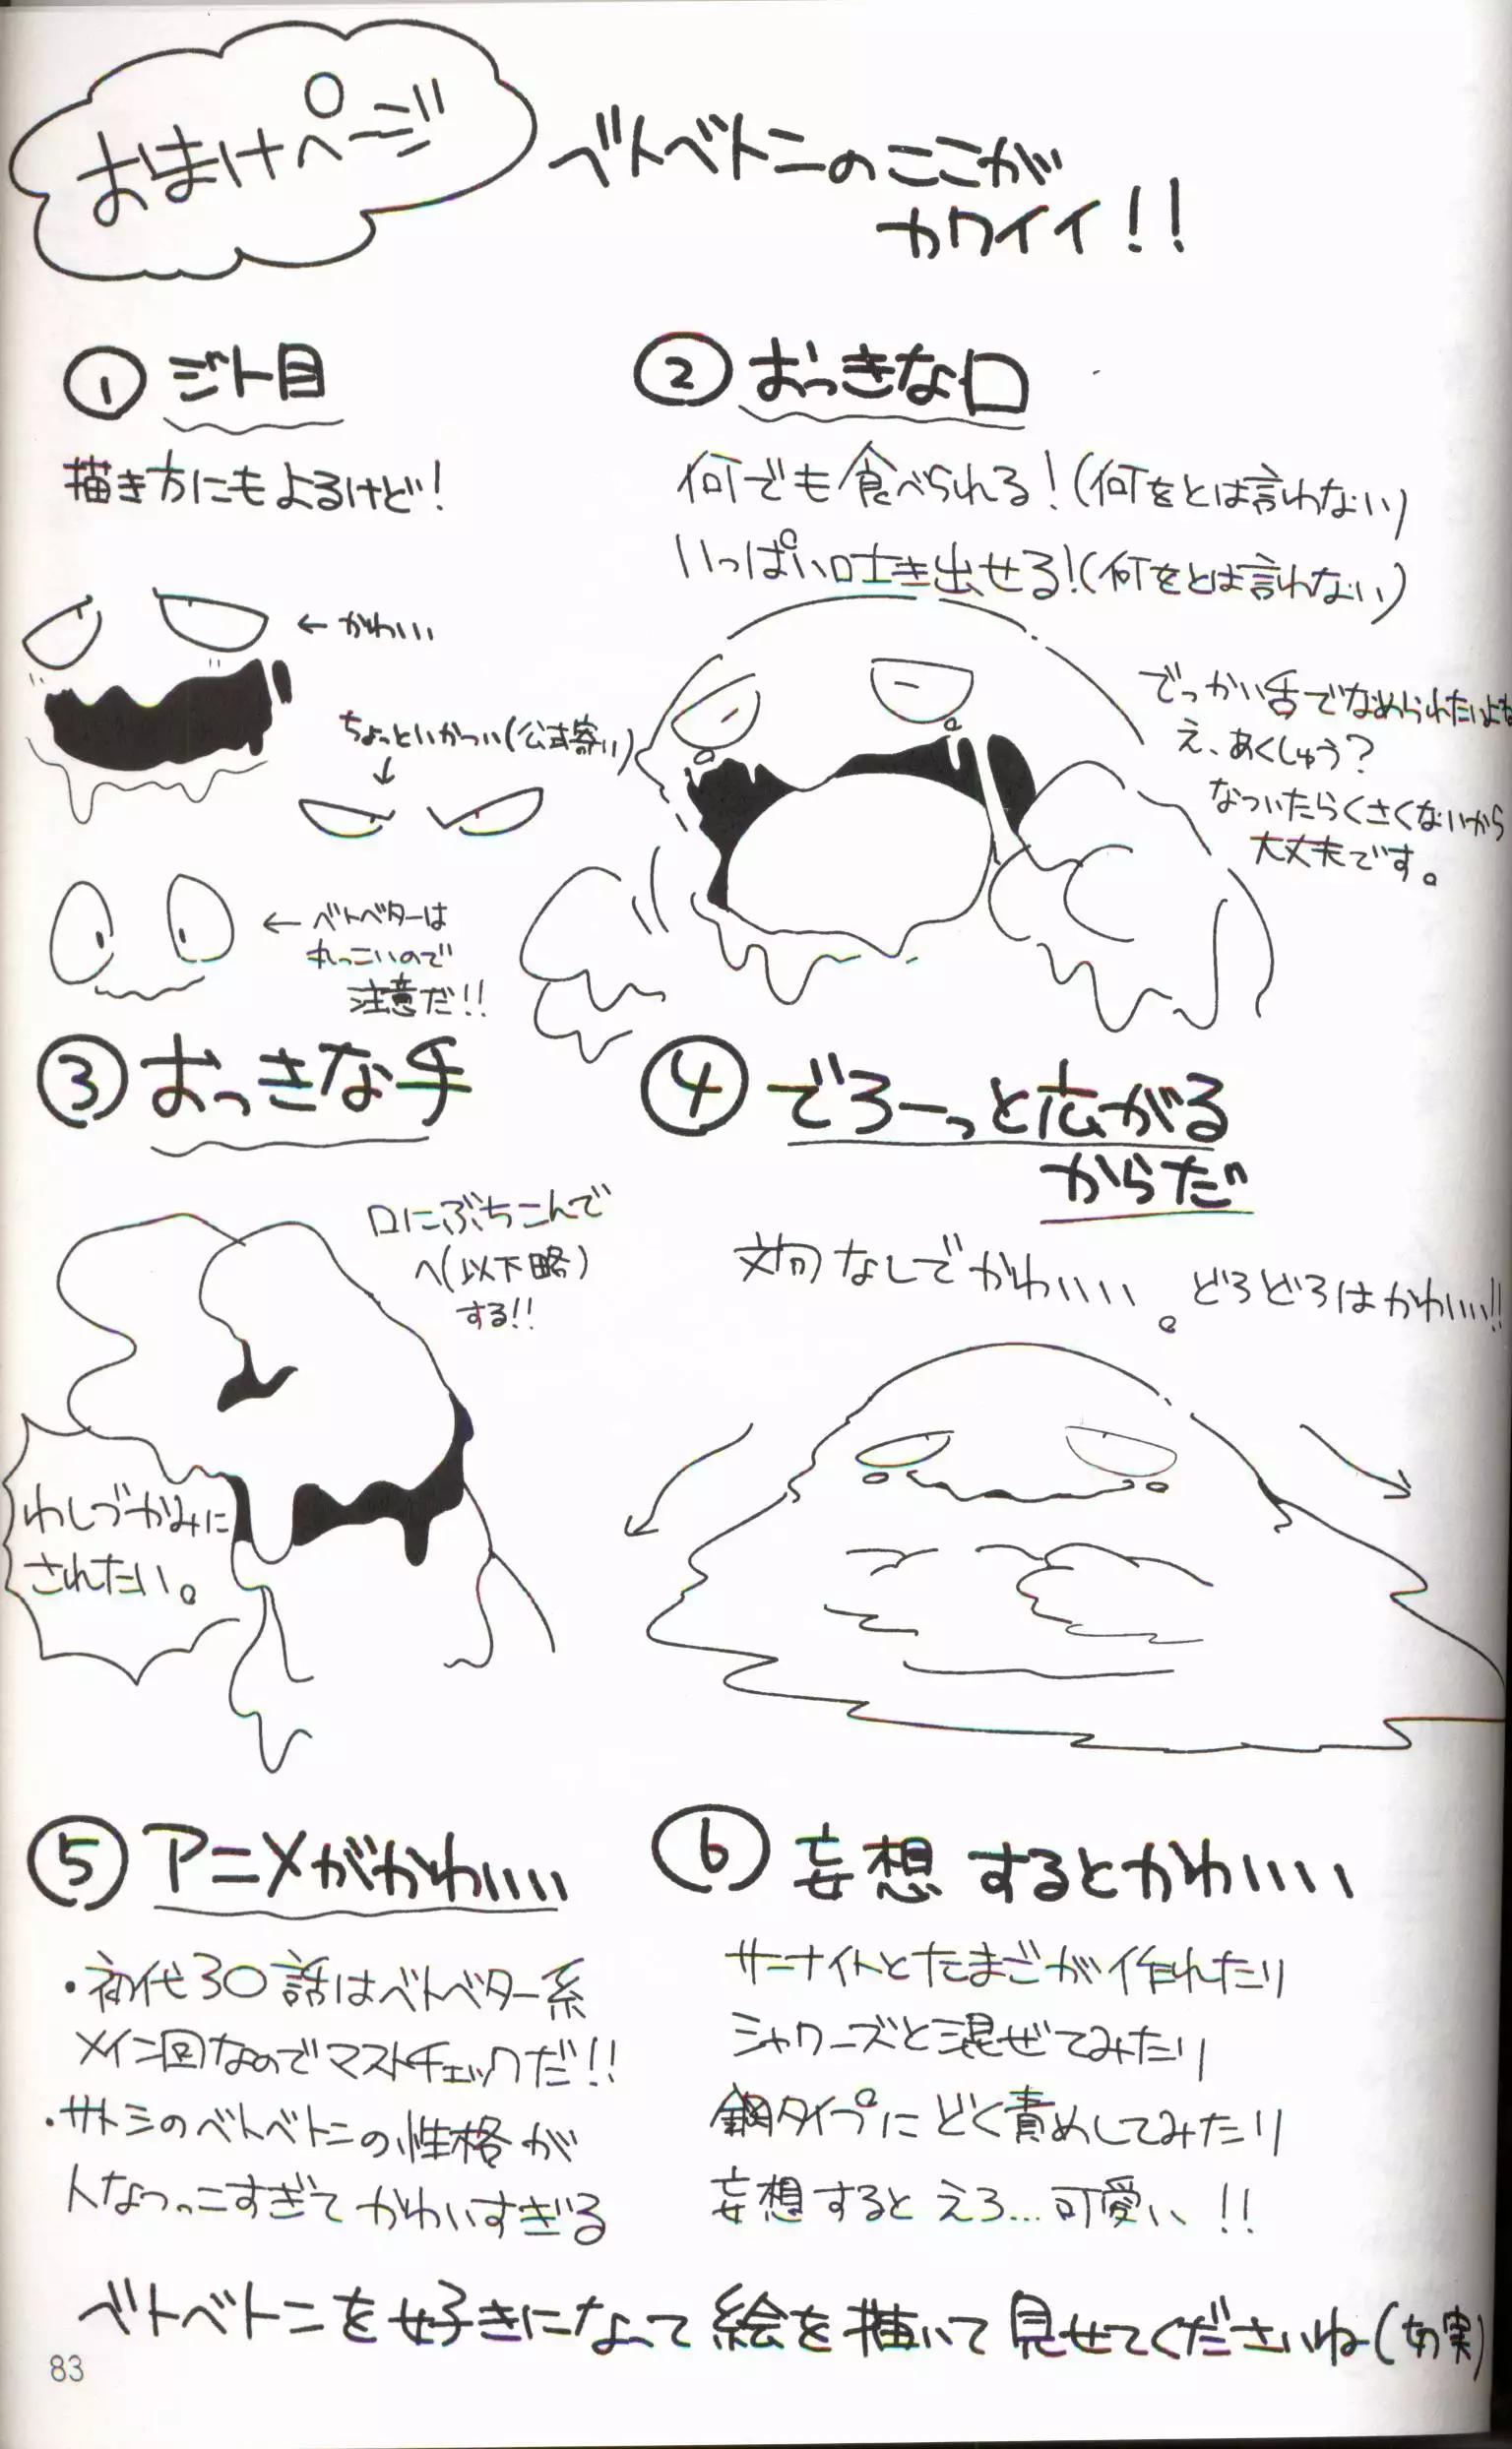 おまけページ
ベトベトニのここが
カワイイ!!
① ジト目
描き方にもよるけど!
← かわいい
ちょっといかつい(公式寄り)
↓
← ベトベターは
れっこいので
注意だ!!
② おっきな口
何でも食べられる!(何をとは言わない)
いっぱい吐き出せる!(何をとは言わない)
でっかい舌でなめられたいよね
え、あくしゅう?
なついたらくさくないから
大丈夫です。
③ おっきな手
口にぶちこんで
ヘ(以下略)
する!!
わしづかみに
されたい。
④ でろーっと広がる
からだ
文句なしでかわいい。どろどろはかわいい!!
⑤ アニメがかわいい
・初代30話はベトベター系
メイン回なのでマストチェックだ!!
・サトシのベトベトニの性格が
人なつっこすぎてかわいすぎる
⑥ 妄想するとかわいい
サーナイトとたまごが作れたり
シャワーズと混ぜてみたり
鋼タイプにどく責めしてみたり
妄想するとえろ…可愛い!!
ベトベトニを好きになって絵を描いて見せてくださいね(切実)
83